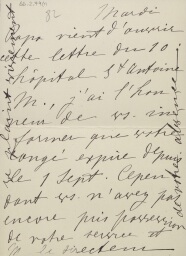 82
Mardi
papa vient d'ouvrir
cette lettre du 10
hôpital St Antoine
M., j'ai l'hon
neur de vs. in
former que votre
congé expire depuis
le 1 Sept. Cepen
dant vs. n'avez pas
encore pris possession
de votre service et
M. le directeur